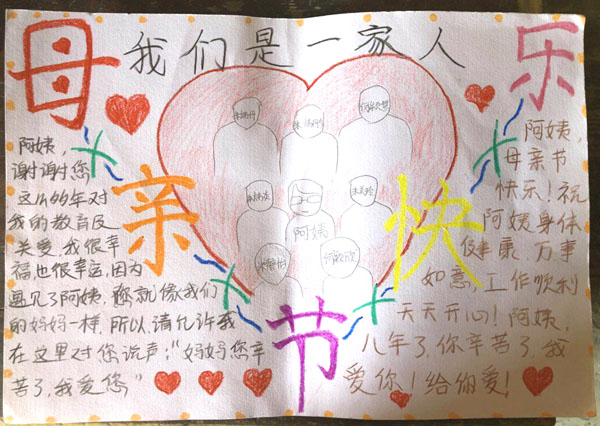 我们是一家人
母
亲
节
快
乐
阿姨，
谢谢您
这么多年对
我的教育及
关爱。我很幸
福也很幸运，因为
遇见了阿姨，你就像我们
的妈妈一样，所以请允许我
在这里对您说声："妈妈您辛
苦了，我爱您"
阿姨
阿姨，
母亲节
快乐！祝
阿姨身体
健康，万事
如意，工作顺利
天天开心！阿姨，
几年了，你辛苦了，我
爱你！给你爱！